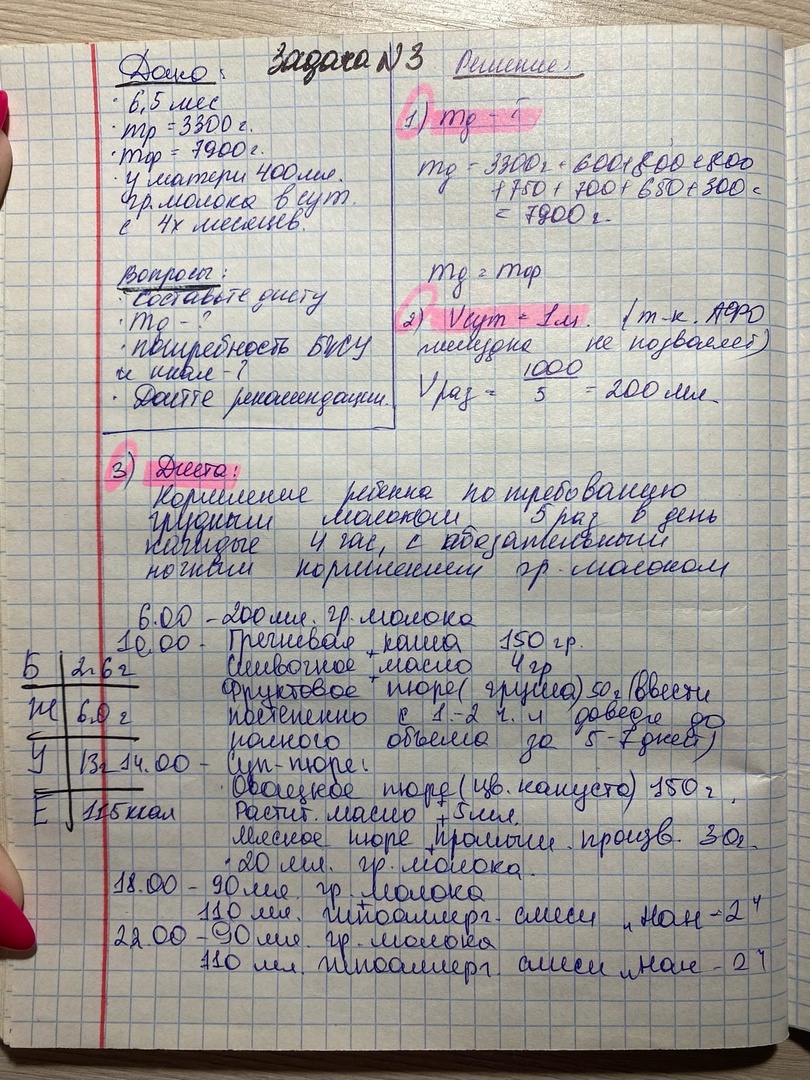 Задача N 3
Дано:
· 6,5 мес
· mр = 3300 г.
· mф = 7900 г.
· у матери 400 мл.
гр. молока в сут.
с 4х месяцев.
Вопросы:
· Составьте диету
· mд - ?
· потребность БЖУ
и ккал - ?
· Дайте рекомендации.
Решение:
1) mд - ?
mд = 3300 г + 600 + 800 + 800
+ 750 + 700 + 650 + 300 =
= 7900 г.
mд = mф
2) Vсут = 1 л. (т-к. АФО
желудка не позволяет)
Vраз = 1000/5 = 200 мл.
3) Диета:
Кормление ребенка по требованию
грудным молоком 5 раз в день
каждые 4 час, с обязательным
ночным кормлением гр. молоком
6.00 - 200 мл. гр. молока
10.00 - Гречневая каша 150 гр.
Сливочное масло 4 гр
Фруктовое пюре (груша) 50 г (ввести
постепенно с 1-2 ч. л доведя до
полного объема за 5-7 дней)
14.00 - Суп-пюре:
Овощное пюре (цв. капуста) 150 г.
Растит. масло 5 мл.
Мясное пюре промыш. произв. 30 г.
· 20 мл. гр. молока.
18.00 - 90 мл. гр. молока
110 мл. гипоаллерг. смеси „Нан - 2"
22.00 - 90 мл. гр. молока
110 мл. гипоаллерг. смеси „Нан - 2"
Б 2.6 г
Ж 6.0 г
У 13 г
Е 115 ккал